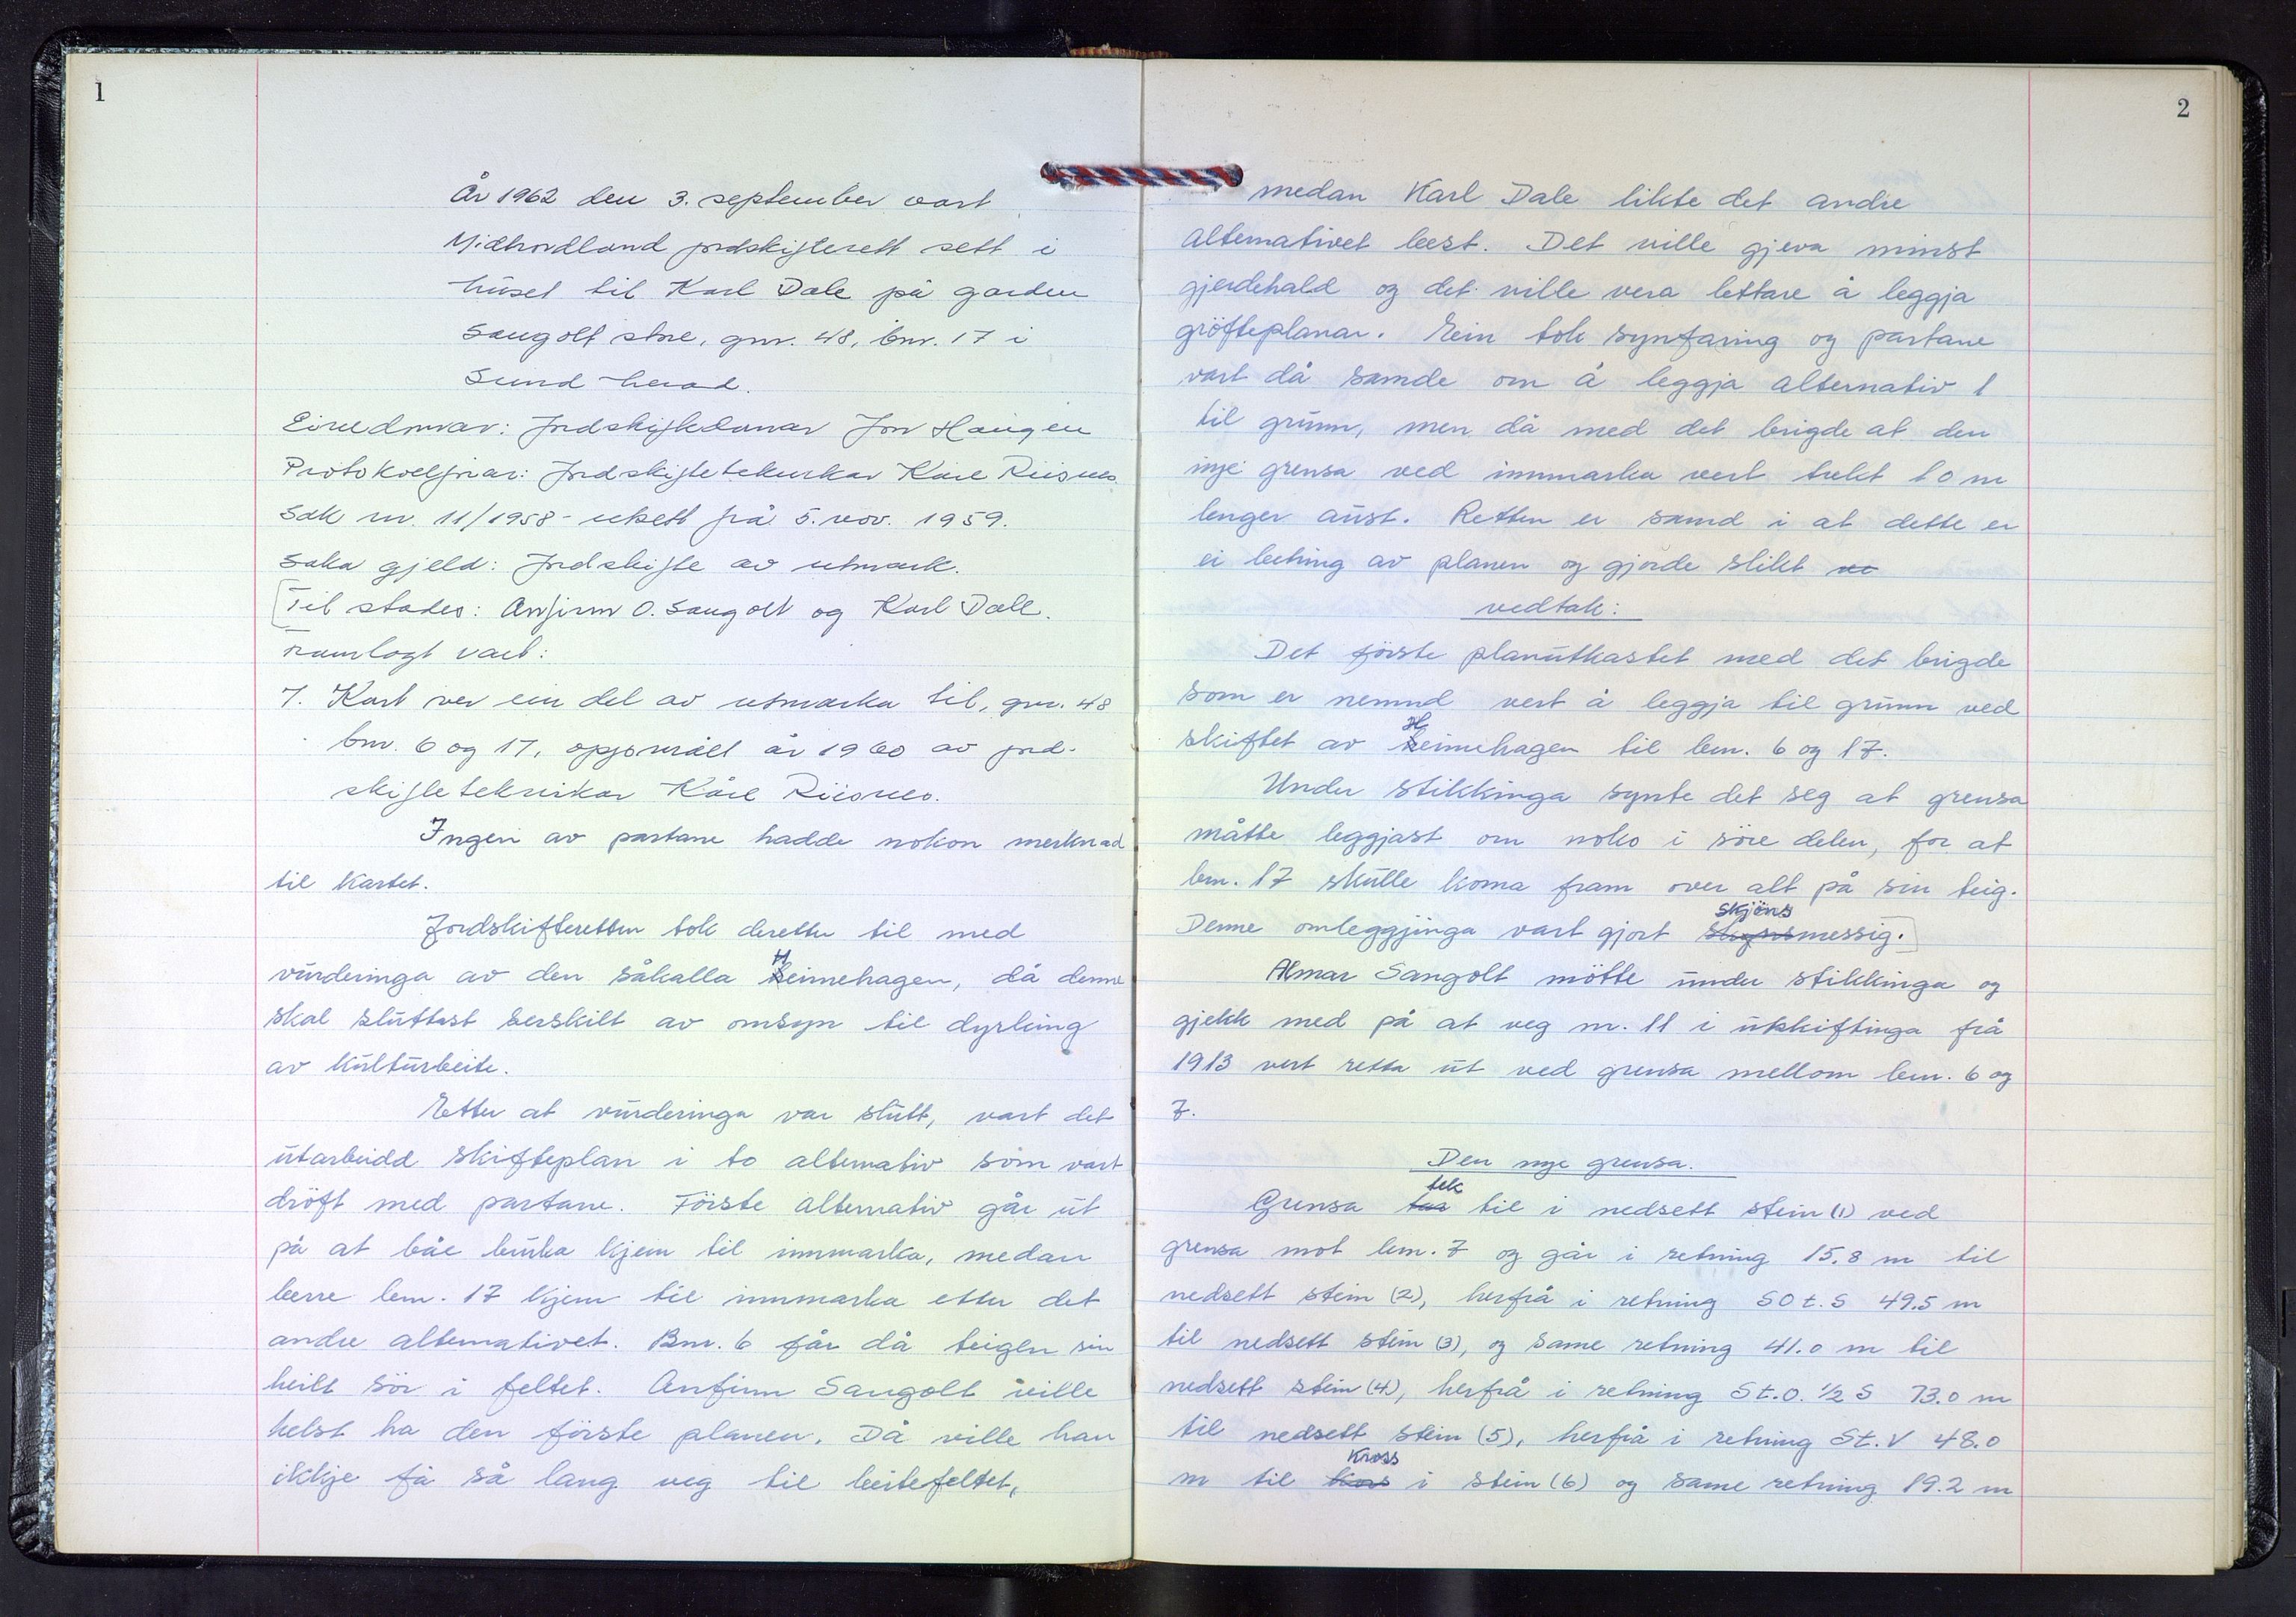 1
År 1962 den 3. september vart
Midhordland jordskifterett sett i
huset til Karl Dale på garden
Sangolt støre, gnr. 48, bnr. 17 i
Sund herad.
Einedomar: Jordskiftedomar Jon Haugen
Protokollførar: Jordskifteteknikar Kåre Riisnes
Sak nr. 11/1958 - utsett frå 5. nov. 1959.
Saka gjeld: Jordskifte av utmark.
Til stades: Anfinn O. Sangolt og Karl Dale.
Framlagt vart:
7. Kart over ein del av utmarka til, gnr. 48
bnr. 6 og 17, oppmålt år 1960 av jord-
skifteteknikar Kåre Riisnes.
Ingen av partane hadde nokon merknad
til kartet.
Jordskifteretten tok deretter til med
vurderinga av den såkalla Heimehagen, då denne
skal sluttast serskilt av omsyn til dyrking
av kulturbeite.
Etter at vurderinga var slutt, vart det
utarbeidd skifteplan i to alternativ som vart
dröft med partane. Förste alternativ går ut
på at båe bruka kjem til innmarka, medan
berre bnr. 17 kjem til innmarka etter det
andre alternativet. Bnr. 6 får då teigen sin
heilt sör i feltet. Anfinn Sangolt ville
helst ha den förste planen. Då ville han
ikkje få så lang veg til beitefeltet,
2
medan Karl Dale likte det andre
alternativet best. Det ville gjeva minst
gjerdehald og det ville vera lettare å leggja
gröfteplanar. Ein tok synfaring og partane
vart då samde om å leggja alternativ 1
til grunn, men då med det brigde at den
nye grensa ved innmarka vert trekt 10 m
lenger aust. Retten er samd i at dette er
ei betring av planen og gjorde slikt ve
vedtak:
Det förste planutkastet med det brigde
som er nemnd vert å leggja til grunn ved
skiftet av Heimehagen til bnr. 6 og 17.
Under stikkinga synte det seg at grensa
måtte leggjast om noko i söre delen, for at
bnr. 17 skulle koma fram over alt på sin teig.
Denne omleggjinga vart gjort skjönsmessig.
Almar Sangolt mötte under stikkinga og
gjekk med på at veg nr. 11 i utskiftinga frå
1913 vert retta ut ved grensa mellom bnr. 6 og
7.
Den nye grensa.
Grensa tek til i nedsett stein (1) ved
grensa mot bnr. 7 og går i retning 15.8 m til
nedsett stein (2), herfrå i retning SO t. S 49.5 m
til nedsett stein (3), og same retning 41.0 m til
nedsett stein (4), herfrå i retning S t. O. 1/2 S 73.0 m
til nedsett stein (5), herfrå i retning S t. V 48.0
m til kross i stein (6) og same retning 19.2 m